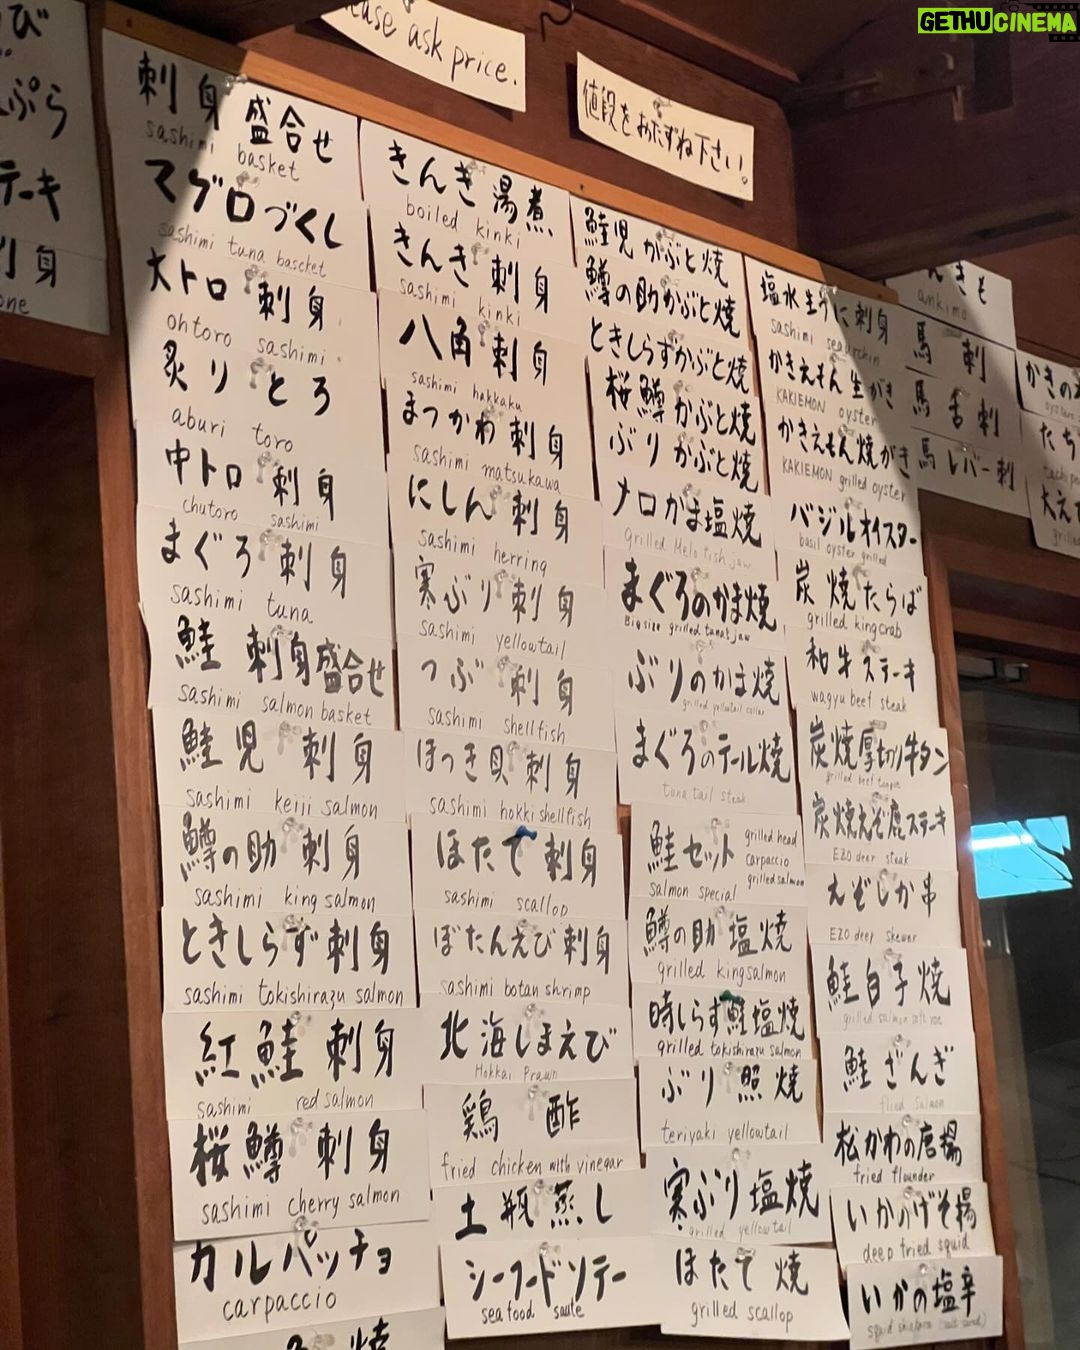 GETHUCINEMA
ase ask price.
値段をおたずね下さい。
び
ぷら
テーキ
刺身
one
刺身盛合せ
sashimi basket
マグロづくし
sashimi tuna bascket
大トロ刺身
ohtoro sashimi
炙りとろ
aburi toro
中トロ刺身
chutoro sashimi
まぐろ刺身
sashimi tuna
鮭刺身盛合せ
sashimi salmon basket
鮭児刺身
sashimi keiji salmon
鱒の助刺身
sashimi king salmon
ときしらず刺身
sashimi tokishirazu salmon
紅鮭刺身
sashimi red salmon
桜鱒刺身
sashimi cherry salmon
カルパッチョ
carpaccio
焼
きんき湯煮
boiled kinki
きんき刺身
sashimi kinki
八角刺身
sashimi hakkaku
まつかわ刺身
sashimi matsukawa
にしん刺身
sashimi herring
寒ぶり刺身
sashimi yellowtail
つぶ刺身
sashimi shellfish
ほっき貝刺身
sashimi hokki shellfish
ほたて刺身
sashimi scallop
ぼたんえび刺身
sashimi botan shrimp
北海しまえび
Hokkai Prawn
鶏酢
fried chicken with vinegar
土瓶蒸し
シーフードソテー
sea food saute
鮭児かぶと焼
鱒の助かぶと焼
ときしらずかぶと焼
桜鱒かぶと焼
ぶりかぶと焼
メロかま塩焼
Grilled Melo fish jaw
まぐろのかま焼
Big size grilled tuna's jaw
ぶりのかま焼
grilled yellowtail collar
まぐろのテール焼
tuna tail steak
鮭セット
grilled head
carpaccio
grilled salmon
salmon special
鱒の助塩焼
grilled kingsalmon
時しらず鮭塩焼
grilled tokishirazu salmon
ぶり照焼
teriyaki yellowtail
寒ぶり塩焼
grilled yellowtail
ほたて焼
grilled scallop
塩水生うに刺身
sashimi sea urchin
かきえもん生がき
KAKIEMON oyster
かきえもん焼がき
KAKIEMON grilled oyster
バジルオイスター
basil oyster grilled
炭焼たらば
grilled king crab
和牛ステーキ
wagyu beef steak
炭焼厚切り牛タン
grilled beef tongue
炭焼えぞ鹿ステーキ
EZO deer steak
えぞしか串
EZO deep skewer
鮭白子焼
grilled salmon soft roe
鮭ざんぎ
fried salmon
松かわの唐揚
fried flounder
いかのげそ揚
deep fried squid
いかの塩辛
んきも
ankimo
馬刺
馬舌刺
馬レバー刺
かきの
たち
大え